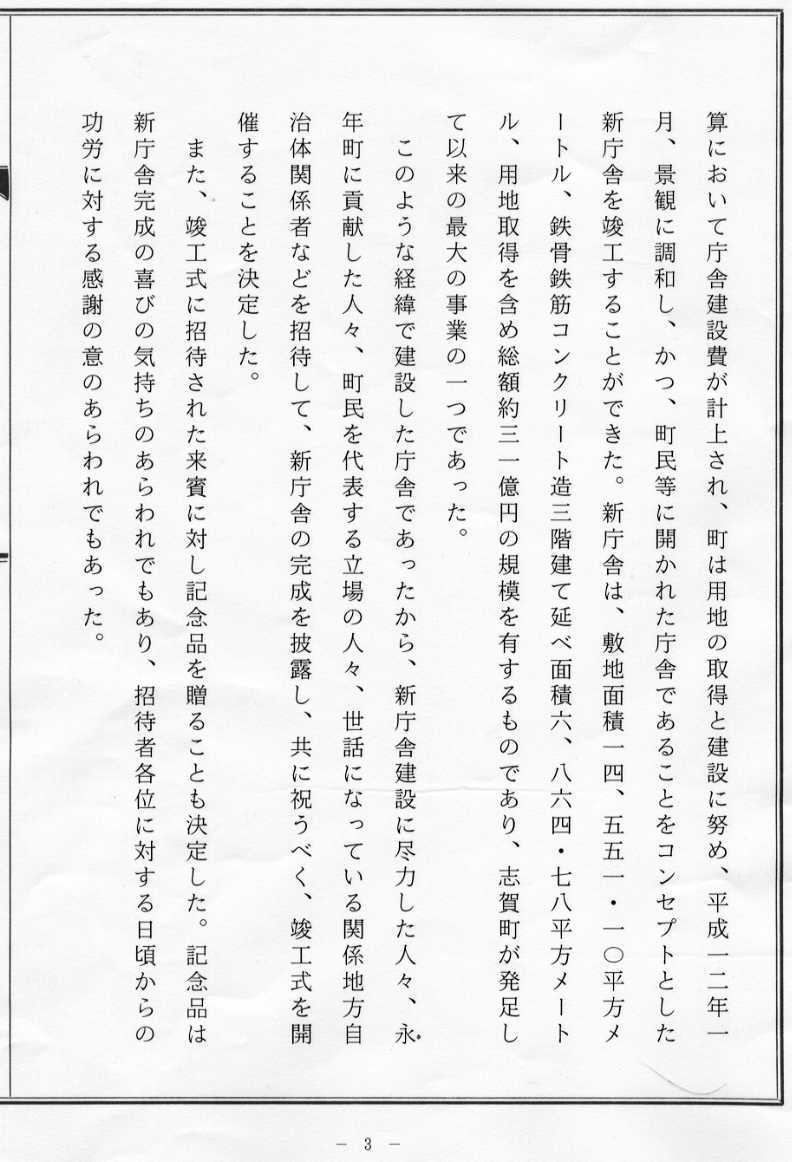 算において庁舎建設費が計上され、町は用地の取得と建設に努め、平成一二年一
月、景観に調和し、かつ、町民等に開かれた庁舎であることをコンセプトとした
新庁舎を竣工することができた。新庁舎は、敷地面積一四、五五一・一〇平方メ
ートル、鉄骨鉄筋コンクリート造三階建て延べ面積六、八六四・七八平方メート
ル、用地取得を含め総額約三一億円の規模を有するものであり、志賀町が発足し
て以来の最大の事業の一つであった。
このような経緯で建設した庁舎であったから、新庁舎建設に尽力した人々、永
年町に貢献した人々、町民を代表する立場の人々、世話になっている関係地方自
治体関係者などを招待して、新庁舎の完成を披露し、共に祝うべく、竣工式を開
催することを決定した。
また、竣工式に招待された来賓に対し記念品を贈ることも決定した。記念品は
新庁舎完成の喜びの気持ちのあらわれでもあり、招待者各位に対する日頃からの
功労に対する感謝の意のあらわれでもあった。
－ 3 －